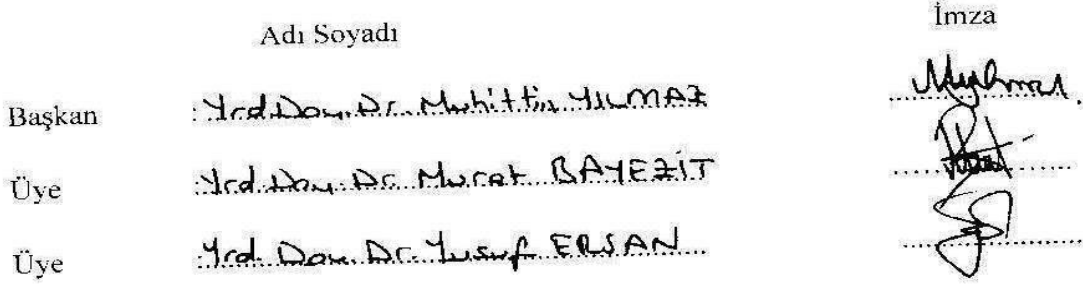 Adı Soyadı İmza
Başkan : Yrd. Doç. Dr. Muhittin YILMAZ
Üye : Yrd. Doç. Dr. Murat BAYEZİT
Üye : Yrd. Doç. Dr. Yusuf ERSAN